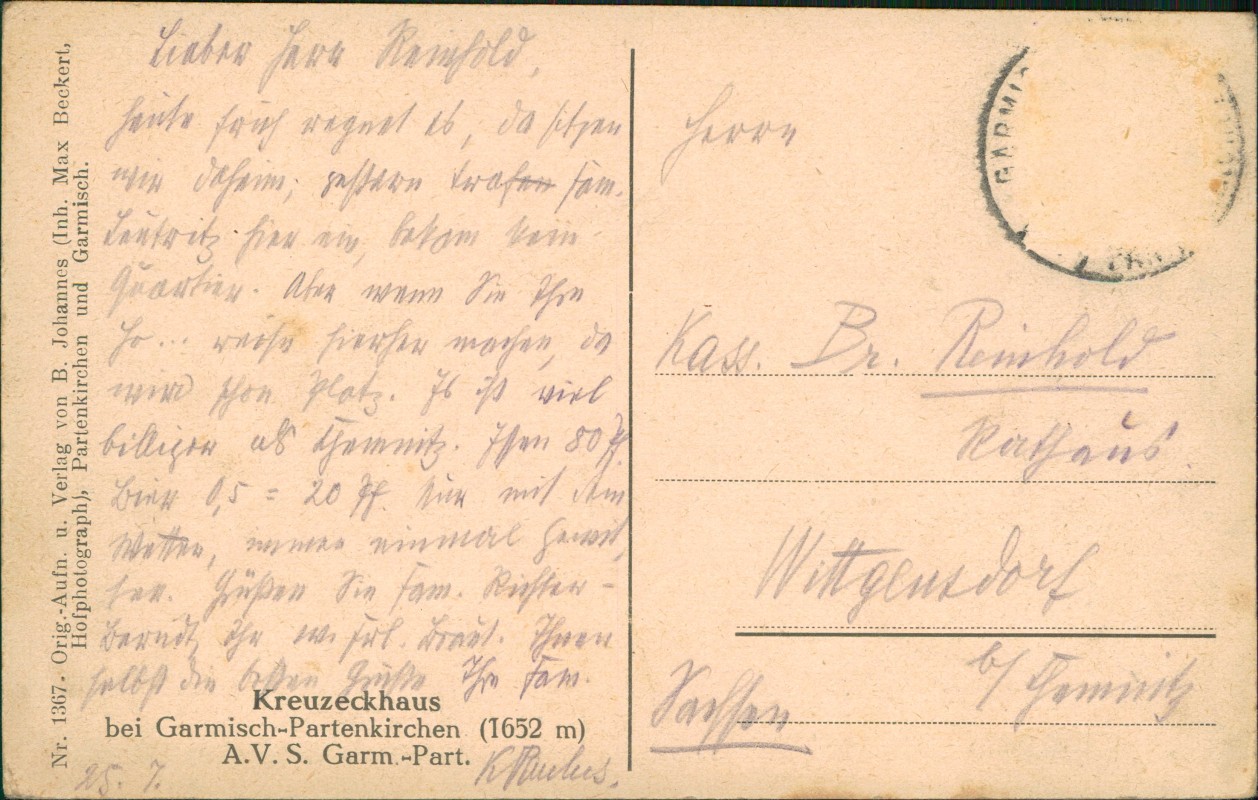 Nr. 1367. Orig.-Aufn. u. Verlag von B. Johannes (Inh. Max Beckert,
Hofphotograph), Partenkirchen und Garmisch.
Lieber Herr Reinhold,
heute früh regnet es, da sitzen
wir daheim; gestern trafen Fam.
Leutritz hier ein, bekam kein
Quartier. Aber wenn Sie Ihre
Ho... reise hierher machen, da
wird schon Platz. Es ist viel
billiger als Chemnitz. Essen 80 Pf.
Bier 0,5 = 20 Pf. Nur mit dem
Wetter, immer einmal Gewit,
ter. Grüßen Sie Fam. Richter-
Berndt, Ihr Frl. Braut. Ihnen
selbst die besten Grüße Ihre Fam.
K Paulus.
25. 7.
Kreuzeckhaus
bei Garmisch-Partenkirchen (1652 m)
A.V.S. Garm.-Part.
GARMI
Herrn
Kass. Br. Reinhold
Rathaus
Wittgensdorf
b/ Chemnitz
Sachsen